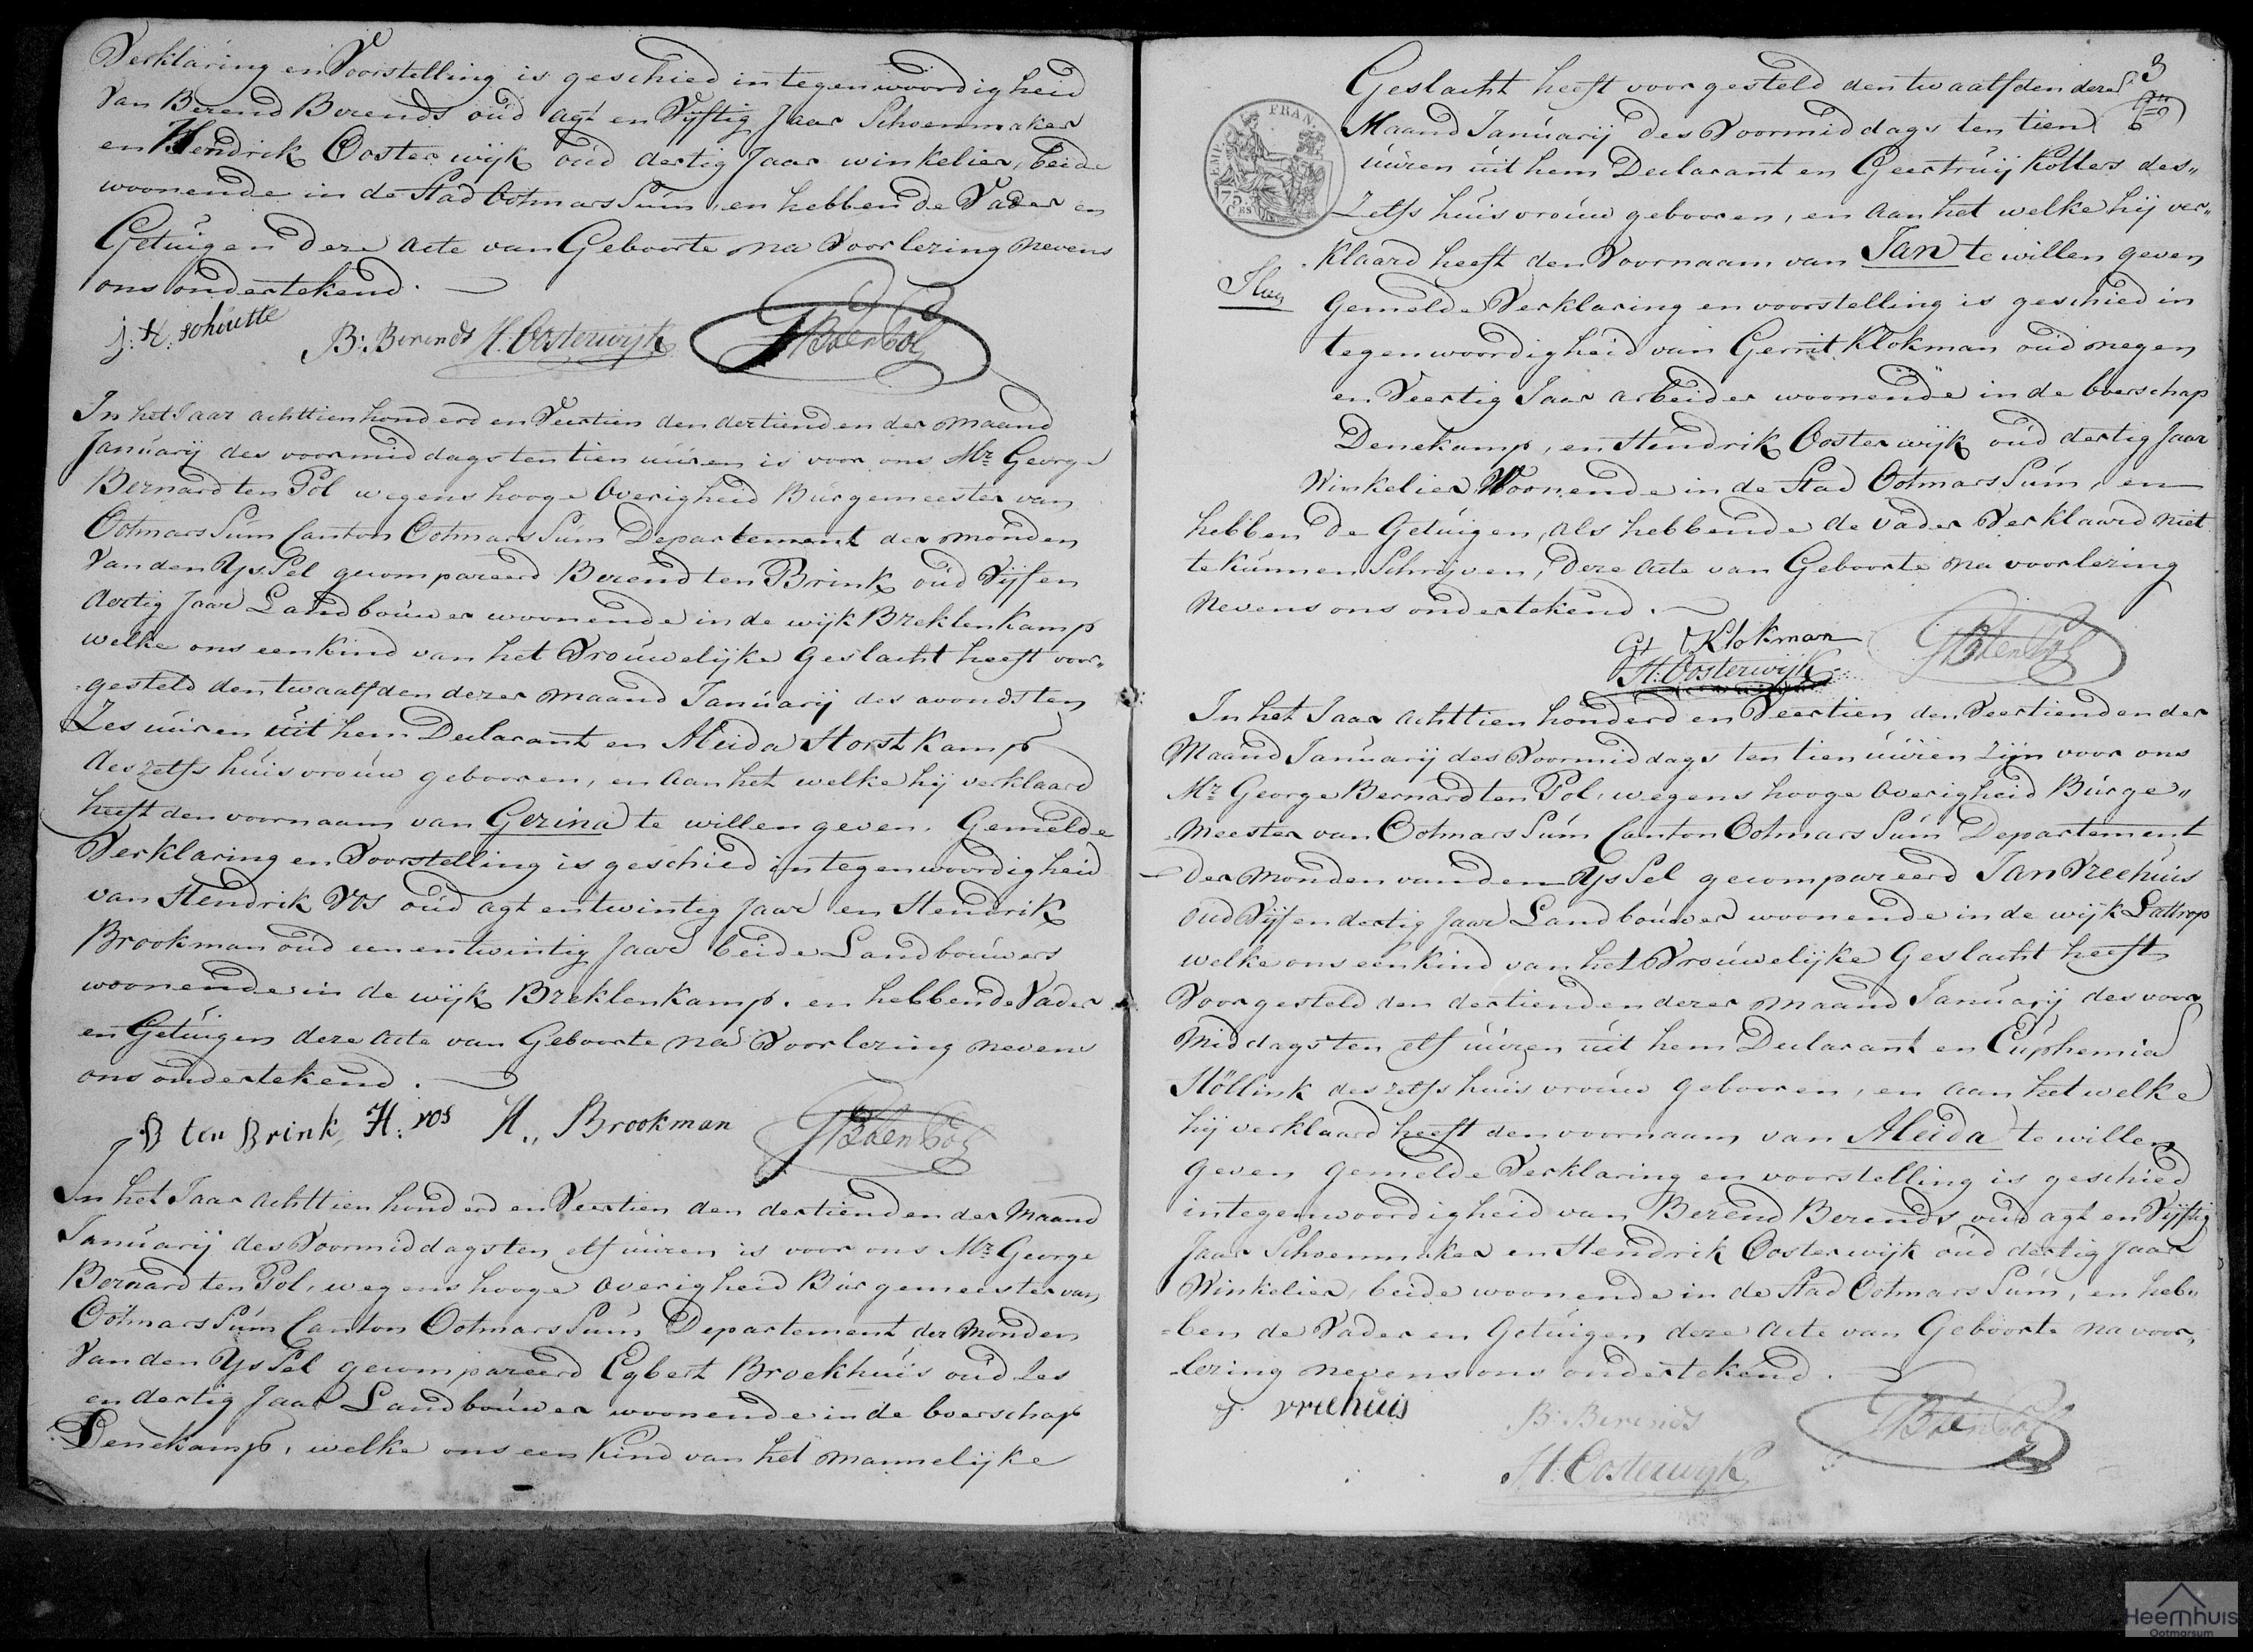 Verklaring en Voorstelling is geschied in tegenwoordigheid
Van Berend Berends oud agt en Vyftig Jaar Schoenmaker
en Hendrik Oosterwijk oud dertig Jaar winkelier, beide
woonende in de Stad OotmarsSum, en hebben de Vader en
Getuigen deze acte van Geboorte na Voorlezing nevens
ons ondertekend.
j: H: schoutte
B: Berends H. Oosterwijk GBtenPol
In het Jaar achttienhonderd en Veertien den dertienden der maand
Januarij des voormiddags ten tien uuren is voor ons Mr George
Bernard ten Pol wegens hooge Overigheid Burgemeester van
OotmarsSum Canton OotmarsSum Departement der monden
Van den YsSel gecompareerd Berend ten Brink oud Vijf en
dertig Jaar Landbouwer woonende in de wijk Breklenkamp
welke ons een Kind van het Vrouwelijke Geslacht heeft voor„
gesteld den twaalfden dezer maand Januarij des avonds ten
Zes uuren uit hem Declarant en Aleida Horstkamp
deszelfs huisvrouw gebooren, en aan het welke hij verklaard
heeft den voornaam van Gezina te willen geven. Gemelde
Verklaring en Voorstelling is geschied in tegenwoordigheid
van Hendrik Vos oud agt en twintig Jaar en Hendrik
Brookman oud een en twintig Jaar beide Landbouwers
woonende in de wijk Breklenkamp. en hebben de Vader
en Getuigen deze acte van Geboorte na Voorlezing nevens
ons ondertekend.
B ten Brink, H: vos H„ Brookman GBtenPol
In het Jaar achttien honderd en Veertien den dertienden der Maand
Januarij des Voormiddags ten elf uuren is voor ons Mr George
Bernard ten Pol, wegens hooge overigheid Burgemeester van
OotmarsSum Canton OotmarsSum Departement der Monden
Van den YsSel gecompareerd Egbert Broekhuis oud Zes
en dertig Jaar Landbouwer woonende in de boerschap
Denekamp, welke ons een Kind van het mannelijke
3
Geslacht heeft voorgesteld den twaalfden dezer
FRAN.
75
CES
Maand Januarij des Voormiddags ten tien
uuren uit hem Declarant en Geertruij Kolters des„
Zelfs huisvrouw gebooren, en aan het welke hij ver„
klaard heeft den Voornaam van Jan te willen geven
Gemelde Verklaring en voorstelling is geschied in
tegenwoordigheid van Gerrit Klokman oud negen
en Veertig Jaar arbeider woonende in de boerschap
Denekamp, en Hendrik Oosterwijk oud dertig Jaar
Winkelier Woonende in de Stad OotmarsSum, en
hebben de Getuigen, als hebbende de vader Verklaard niet
te kunnen Schrijven, deze acte van Geboorte na voorlezing
Nevens ons ondertekend.
Gt Klokman GBtenPol
H: Oosterwijk
In het Jaar achttien honderd en Veertien den Veertienden der
Maand Januarij des Voormiddags ten tien uuren zijn voor ons
Mr George Bernard ten Pol, wegens hooge Overigheid Burge„
Meester van OotmarsSum Canton OotmarsSum Departement
der Monden van den YsSel gecompareerd Jan Vreehuis
oud Vijf en dertig Jaar Landbouwer woonende in de wijk Lattrop
welke ons een Kind van het Vrouwelijke Geslacht heeft
Voorgesteld den dertienden dezer maand Januarij des voor
middags ten elf uuren uit hem Declarant en Euphemia
Höllink deszelfs huisvrouw gebooren, en aan het welke
hij verklaard heeft den voornaam van Aleida te willen
geven gemelde Verklaring en voorstelling is geschied
in tegenwoordigheid van Berend Berends oud agt en Vijftig
Jaar Schoenmaker en Hendrik Oosterwijk oud dertig Jaar
Winkelier, beide woonende in de Stad OotmarsSum, en heb„
ben de Vader en Getuigen, deze acte van Geboorte na voor„
lezing nevens ons ondertekend.
J vreehuis B: Berends GBtenPol
H: Oosterwijk
Heemhuis
Ootmarsum